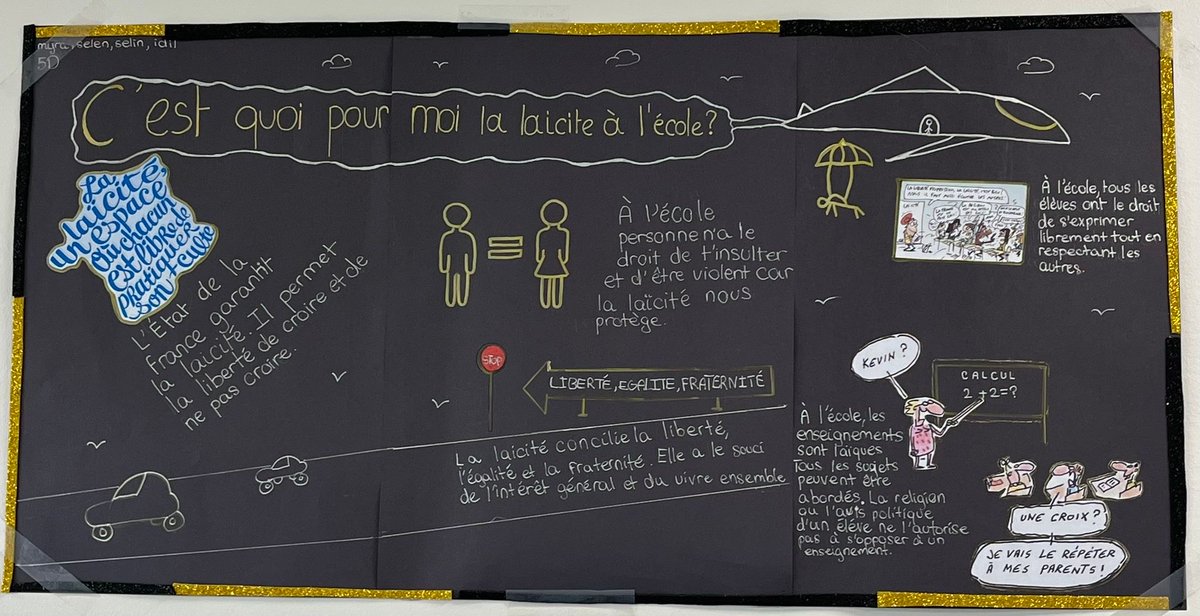 myra, selen, selin, idil
5D
C'est quoi pour moi la laicite à l'école?
La
laïcité,
un espace
où chacun
est libre de
pratiquer
son culte
L'État de la
france garantit
la laicité. Il permet
la liberté de croire et de
ne pas croire.
À l'école
personne n'a le
droit de t'insulter
et d'être violent car
la laïcité nous
protège.
STOP
LIBERTÉ, EGALITE, FRATERNITÉ
La laicité concilie la liberté,
l'égalité et la fraternité. Elle a le souci
de l'intérêt général et du vivre ensemble
À l'école, tous les
élèves ont le droit
de s'exprimer
librement tout en
respectant les
autres.
KEVIN ?
CALCUL
2+2=?
À l'école, les
enseignements
sont laïques
Tous les sujets
peuvent être
abordés. La religion
ou l'avis politique
d'un élève ne l'autorise
pas à s'opposer à un
enseignement.
UNE CROIX ?
JE VAIS LE RÉPÉTER
À MES PARENTS !